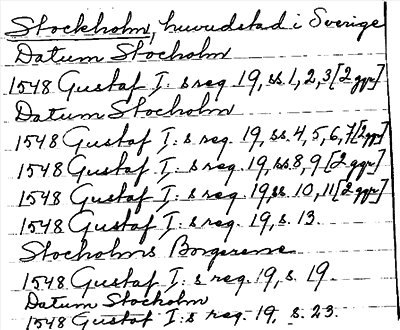 Stockholm, huvudstad i Sverige
Datum Stocholm
1548 Gustaf I:s reg. 19, ss. 1, 2, 3 [2 ggr]
Datum Stocholm
1548 Gustaf I:s reg. 19, ss. 4, 5, 6, 7 [2 ggr]
1548 Gustaf I:s reg. 19, ss. 8, 9 [2 ggr]
1548 Gustaf I:s reg. 19, ss. 10, 11 [2 ggr]
1548 Gustaf I:s reg. 19, s. 13.
Stocholms Borgerenne
1548 Gustaf I:s reg. 19, s. 19.
Datum Stocholm
1548 Gustaf I:s reg. 19, s. 23.